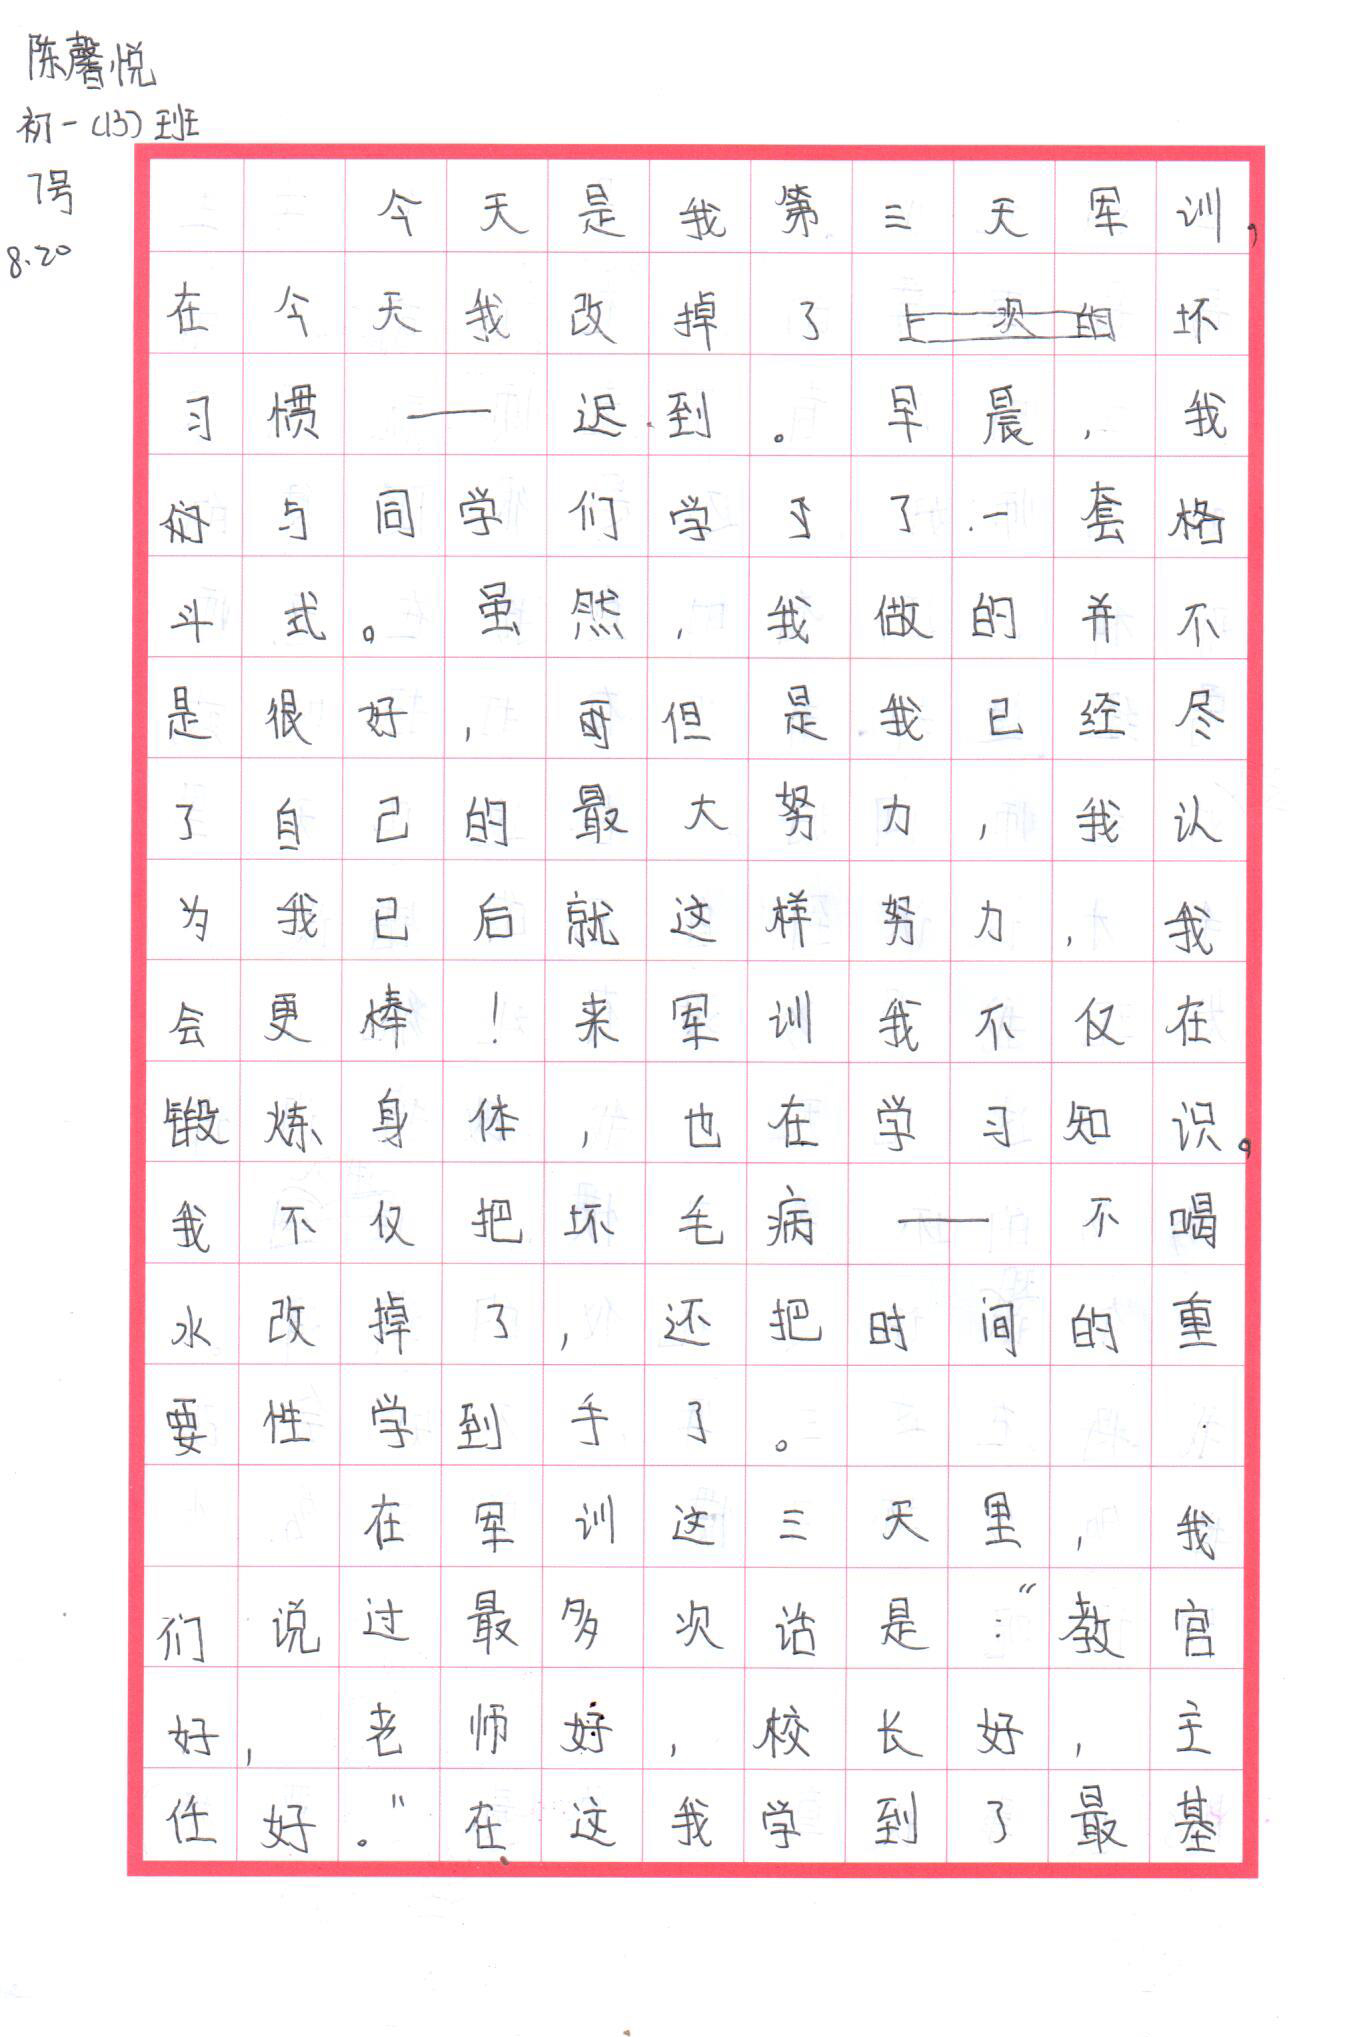 陈馨悦
初一(13)班
7号
8.20
今天是我第三天军训,
在今天我改掉了上次的坏
习惯——迟到。早晨,我
与同学们学了一套格
斗式。虽然,我做的并不
是很好,但是我已经尽
了自己的最大努力,我认
为我已后就这样努力,我
会更棒!来军训我不仅在
锻炼身体,也在学习知识。
我不仅把坏毛病——不喝
水改掉了,还把时间的重
要性学到手了。
在军训这三天里,我
们说过最多次话是:“教官
好,老师好,校长好,主
任好。”在这我学到了最基